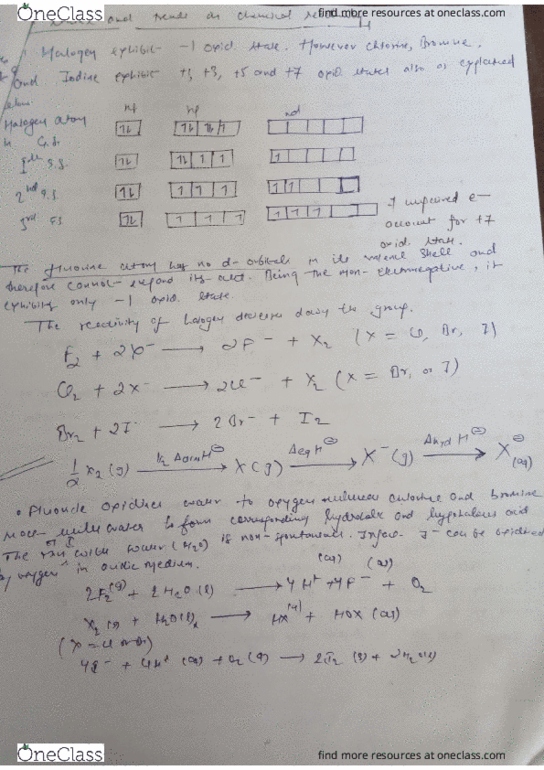 OneClass
find more resources at oneclass.com
and trends in chemical
Halogen exhibit -1 oxid state. However chlorine, Bromine,
and Iodine exhibit +1, +3, +5 and +7 oxid states also as explained
Halogen atom
ns np nd
G.S.
S.S.
2nd
unpaired e-
account for +7
oxid state.
The fluorine atom has no d-orbitals in its valence shell and
therefore cannot expand its octet. Being the electronegative, it
exhibits only -1 oxid. state.
The reactivity of halogen decreases down the group.
F2 + 2X- → 2F- + X2 (X = Cl, Br, I)
Cl2 + 2X- → 2Cl- + X2 (X = Br, or I)
Br2 + 2I- → 2Br- + I2
1/2 X2 (g) → X(g) → X-(g) → X-(aq)
• Fluorine oxidises water to oxygen chlorine and bromine
with water to form corresponding and
The of I with water (H2O) is non-spontaneous. I- can be oxidised
by oxygen in acidic medium.
2F2(g) + 2H2O(l) → 4H+ + 4F- + O2
X2 + H2O(l) → HX + HOX (aq)
4I- + 4H+ (aq) + O2 (g) → 2I2 (s) + 2H2O(l)
OneClass
find more resources at oneclass.com